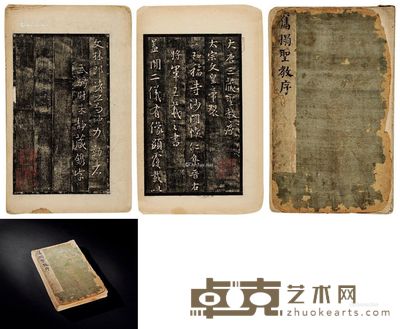 舊搨聖教序
大唐三藏聖教序
太宗文皇帝製
弘福寺沙門懷仁集晉右
將軍王羲之書
蓋聞二儀有像顯覆載以
文林郎諸葛神力勒石
武騎尉朱靜藏鐫字
卓克艺术网
zhuokearts.com